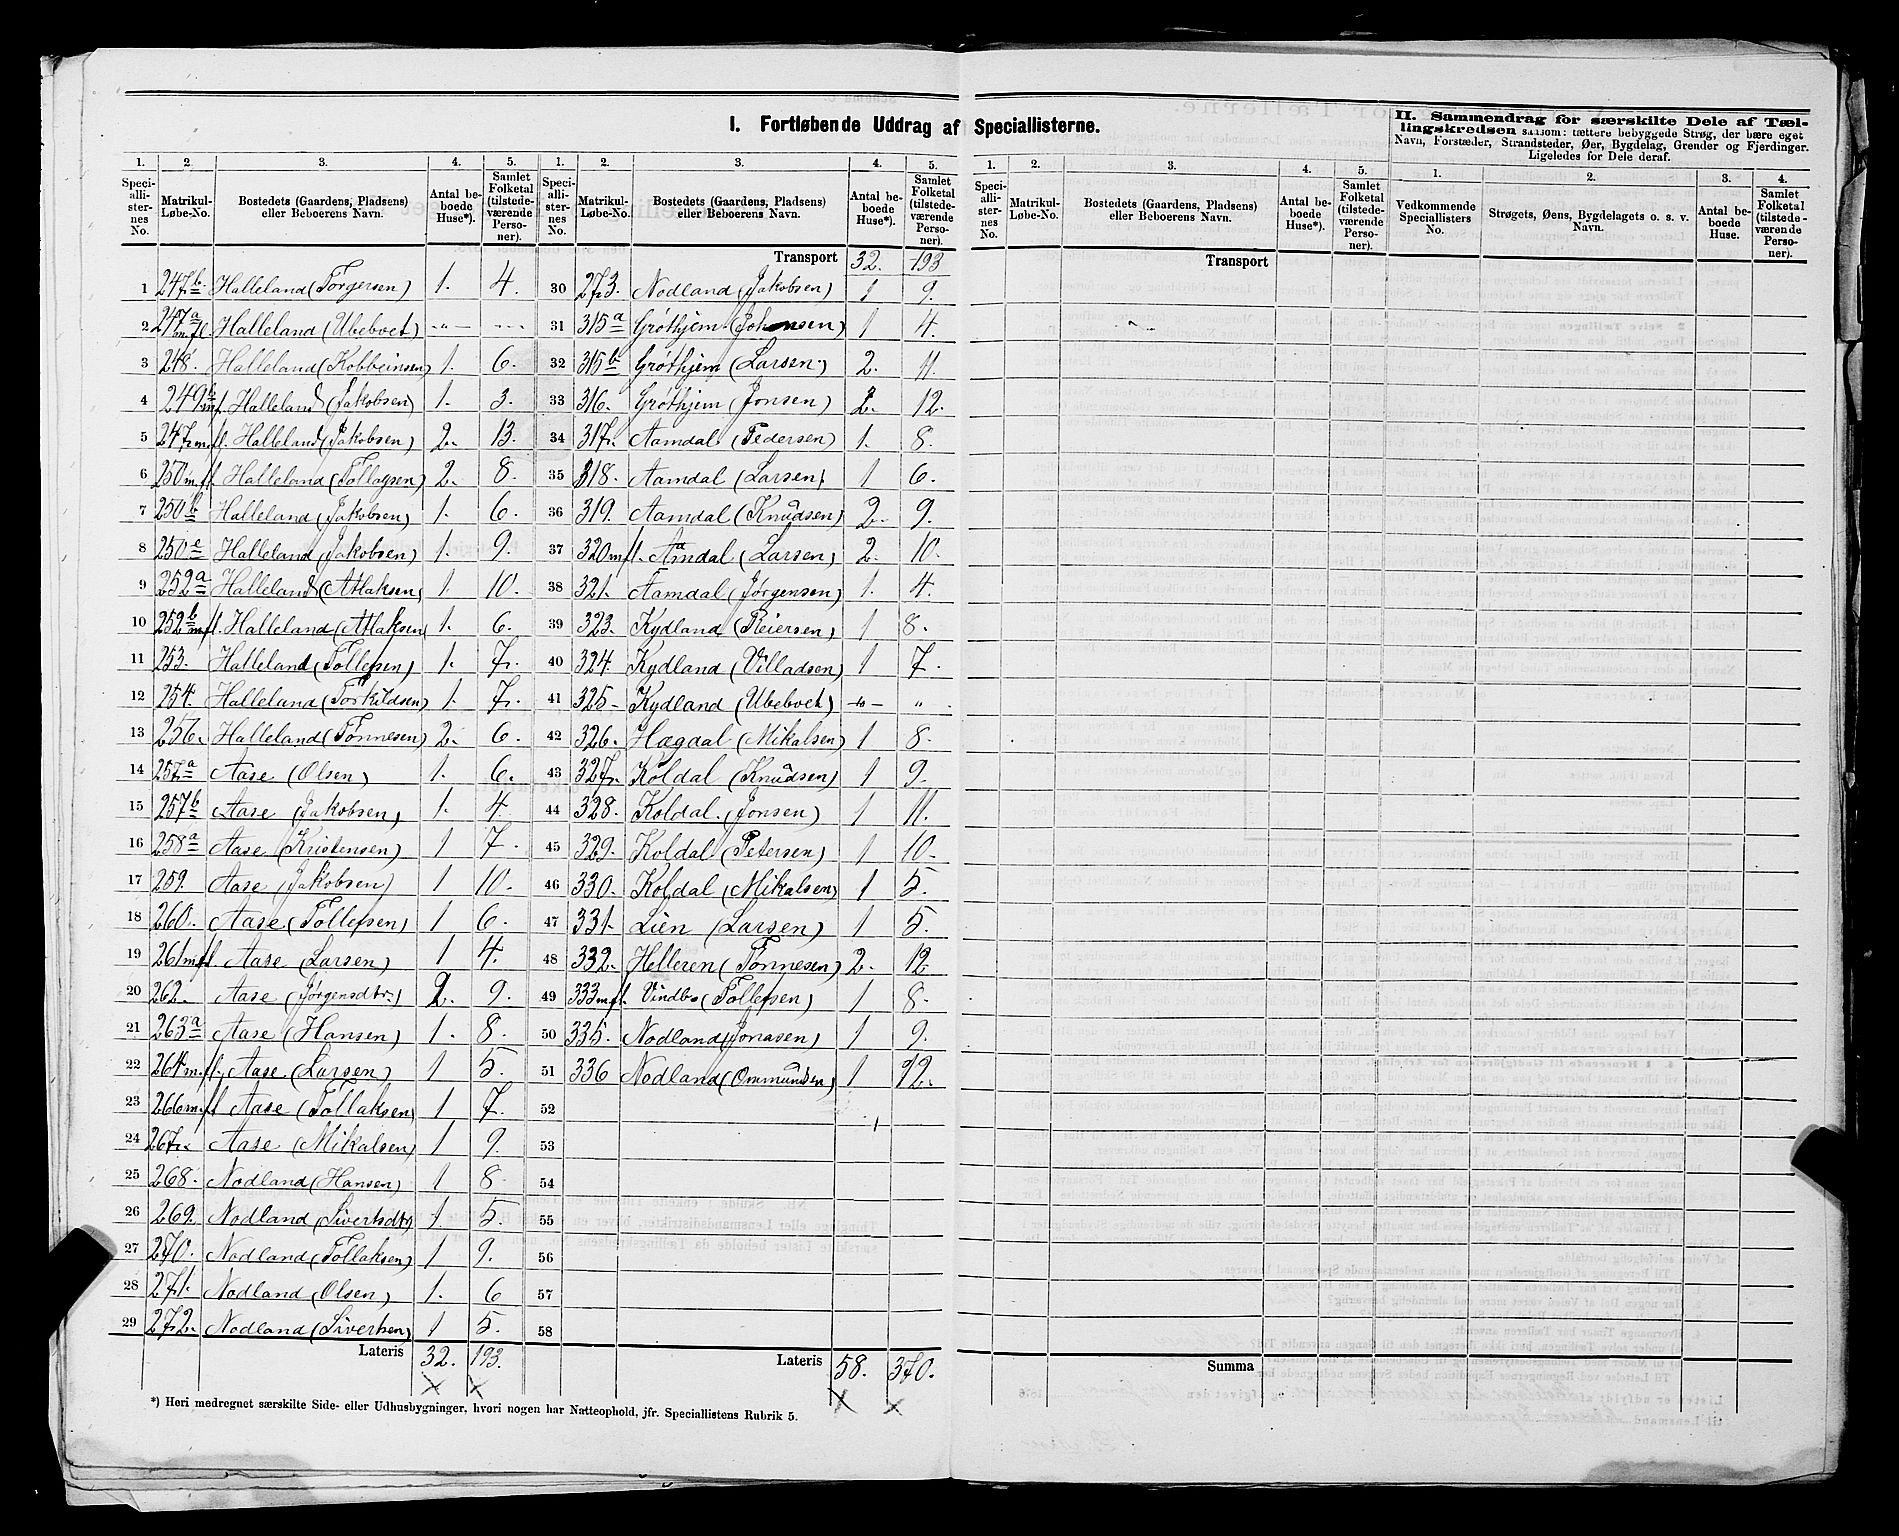 I. Fortløbende Uddrag af Speciallisterne.
II. Sammendrag for særskilte Dele af Tællingskredsen saasom: tættere bebyggede Strøg, der bære eget
Navn, Forstæder, Strandsteder, Øer, Bygdelag, Grender og Fjerdinger.
Ligeledes for Dele deraf.
1. 2. 3. 4. 5. 1. 2. 3. 4. 5. 1. 2. 3. 4. 5. 1. 2. 3. 4.
Speciallisternes No. Matrikul-Løbe-No. Bostedets (Gaardens, Pladsens) eller Beboerens Navn. Antal beboede Huse*). Samlet Folketal (tilstedeværende Personer).
Speciallisternes No. Matrikul-Løbe-No. Bostedets (Gaardens, Pladsens) eller Beboerens Navn. Antal beboede Huse*). Samlet Folketal (tilstedeværende Personer).
Speciallisternes No. Matrikul-Løbe-No. Bostedets (Gaardens, Pladsens) eller Beboerens Navn. Antal beboede Huse*). Samlet Folketal (tilstedeværende Personer).
Vedkommende Speciallisters No. Strøgets, Øens, Bygdelagets o. s. v. Navn. Antal beboede Huse. Samlet Folketal (tilstedeværende Personer).
1 247b. Halleland (Torgersen) 1. 4.
2 247a m fl Halleland (Ubeboet) -"- -"-
3 248. Halleland (Kobbeinsen) 1. 6.
4 249b m.f. Halleland (Jakobsen) 1. 3.
5 247. m.fl. Halleland (Jakobsen) 2. 13.
6 250 m.fl. Halleland (Tollagsen) 2. 8.
7 250b Halleland (Jakobsen) 1. 6.
8 250c Halleland (Jakobsen) 1. 9.
9 252a Halleland (Atlaksen) 1. 10.
10 252b m.fl. Halleland (Atlaksen) 1. 6.
11 253. Halleland (Tollefsen) 1. 7.
12 254. Halleland (Torkildsen) 1. 7.
13 256. Halleland (Tønnesen) 2. 6.
14 257a Aase (Olsen) 1. 6.
15 257b Aase (Jakobsen) 1. 4.
16 258a Aase (Kristensen) 1 7.
17 259. Aase (Jakobsen) 1 10.
18 260. Aase (Tollefsen) 1 6.
19 261 m.fl. Aase (Larsen) 1 4.
20 262. Aase (Jørgensdtr.) 2. 9.
21 263a Aase (Hansen) 1. 8.
22 264 m.fl. Aase (Larsen) 1 5.
23 266 m.fl Aase (Tollaksen) 1 7.
24 267. Aase (Mikalsen) 1 9.
25 268. Nodland (Hansen) 1 8.
26 269. Nodland (Sivertsdtr) 1. 5.
27 270. Nodland (Tollaksen) 1 9.
28 271. Nodland (Olsen) 1. 6
29 272. Nodland (Sivertsen) 1 5.
Lateris 32. 193.
Transport 32. 193
30 273. Nodland (Jakobsen) 1 9.
31 315a Grøthjem (Johansen) 1 4.
32 315b Grøthjem (Larsen) 2. 11.
33 316. Grøthjem (Jonsen) 2. 12.
34 317. Aamdal (Pedersen) 1. 8.
35 318. Aamdal (Larsen) 1 6.
36 319. Aamdal (Knudsen) 2. 9.
37 320 m.fl. Aamdal (Larsen) 2. 10.
38 321. Aamdal (Jørgensen) 1. 4.
39 323. Kydland (Reiersen) 1 8.
40 324. Kydland (Villadsen) 1 7.
41 325 Kydland (Ubeboet) -"- "
42 326. Hægdal (Mikalsen) 1 8.
43 327. Koldal (Knudsen) 1 9.
44 328. Koldal (Jonsen) 1 11.
45 329. Koldal (Petersen) 1 10.
46 330. Koldal (Mikalsen) 1 5.
47 331. Lien (Larsen) 1 5.
48 332. Helleren (Tønnesen) 2. 12
49 333 m.fl. (Tollefsen) 1 8.
50 335. Nodland (Jonasen) 1 9.
51 336 Nodland (Ommundsen) 1 12.
52
53
54
55
56
57
58
Lateris 58. 370.
Transport
Summa
*) Heri medregnet særskilte Side- eller Udhusbygninger, hvori nogen har Natteophold, jfr. Speciallistens Rubrik 5.